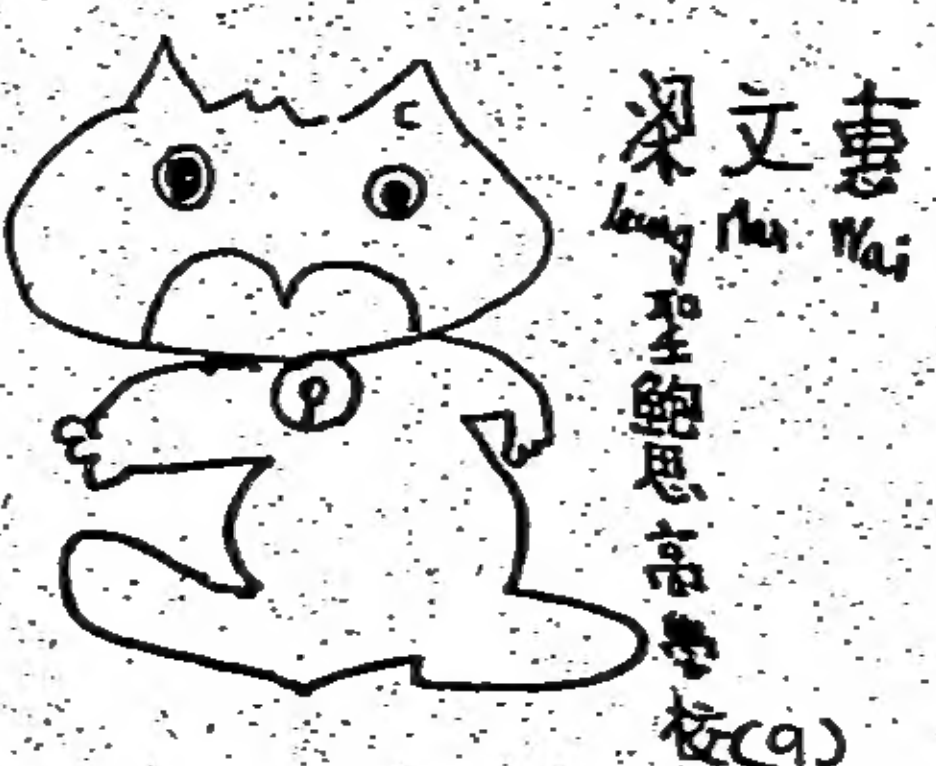 梁文惠
Leung Man Wai
聖鮑思高學校(9)